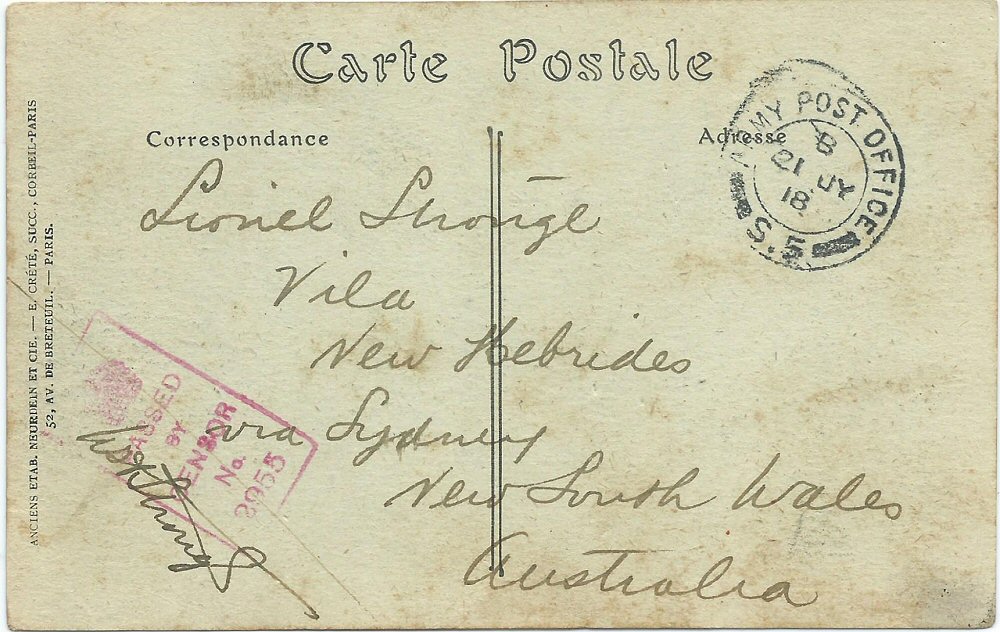 Carte Postale
Correspondance
Adresse
ARMY POST OFFICE
B
21 JY
18
S.5
Lionel Shonge
Vila
New Hebrides
via Sydney
New South Wales
Australia
PASSED
BY
CENSOR
No.
2955
ANCIENS ETAB. NEURDEIN ET CIE. — E. CRÉTÉ, SUCC., CORBEIL-PARIS
52, AV. DE BRETEUIL. — PARIS.